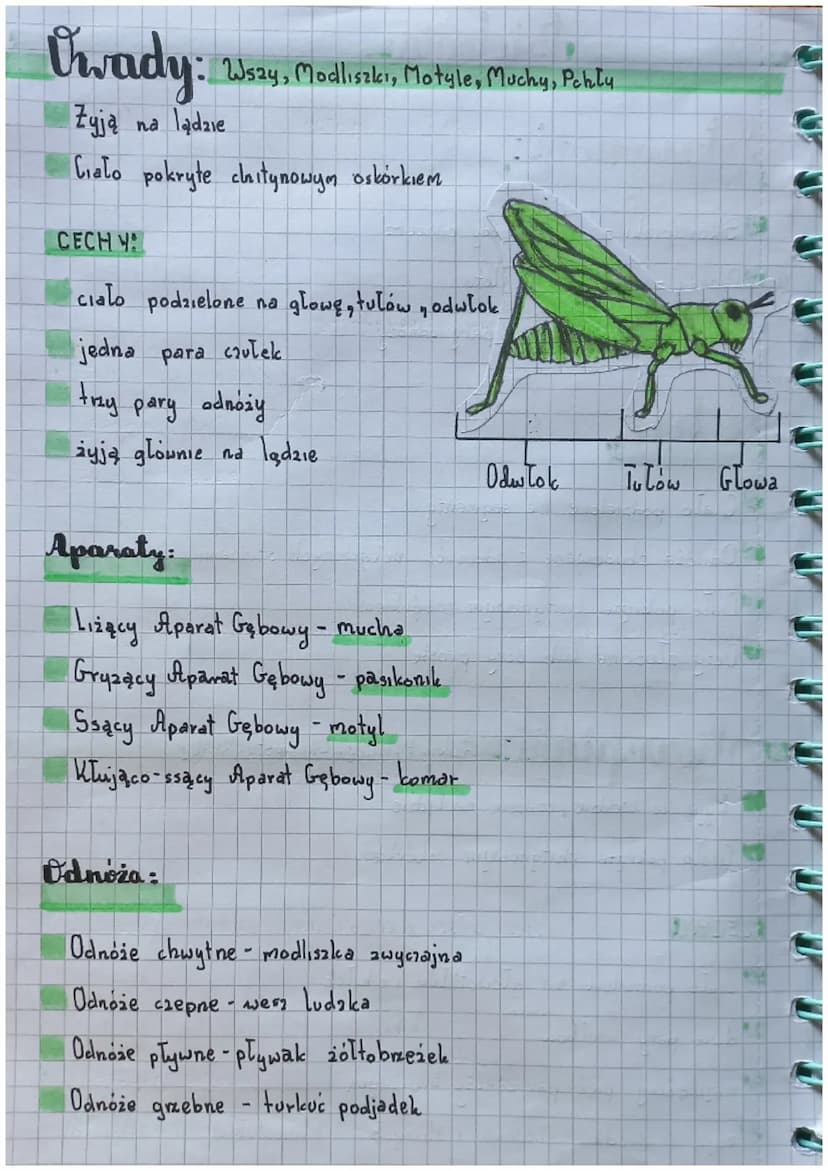 Owady: Wszy, Modliszki, Motyle, Muchy, Pchły
Żyją na lądzie
Ciało pokryte chitynowym oskórkiem
CECHY:
ciało podzielone na głowę, tułów, odwłok
jedna para czułek
trzy pary odnóży
żyją głównie na lądzie
Odwłok Tułów Głowa
Aparaty:
Liżący Aparat Gębowy - mucha
Gryzący Aparat Gębowy - pasikonik
Ssący Aparat Gębowy - motyl
Kłująco-ssący Aparat Gębowy - komar
Odnóża:
Odnóże chwytne - modliszka zwyczajna
Odnóże czepne - wesz ludzka
Odnóże pływne - pływak żółtobrzeżek
Odnóże grzebne - turkuć podjadek